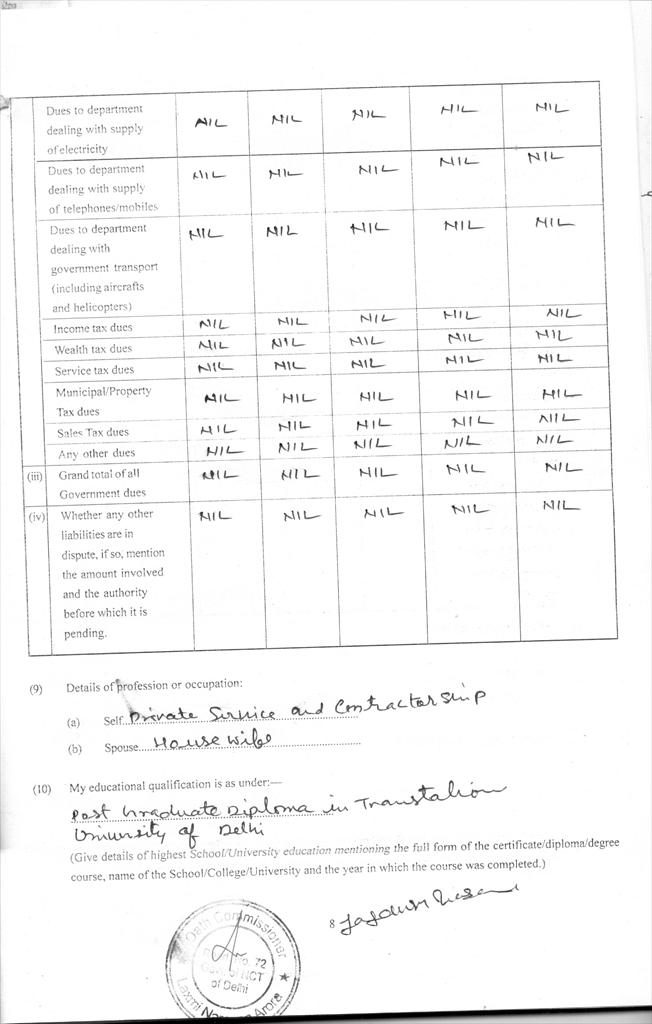 Dues to department NIL NIL NIL NIL NIL
dealing with supply
of electricity
Dues to department NIL NIL NIL NIL NIL
dealing with supply
of telephones/mobiles
Dues to department NIL NIL NIL NIL NIL
dealing with
government transport
(including aircrafts
and helicopters)
Income tax dues NIL NIL NIL NIL NIL
Wealth tax dues NIL NIL NIL NIL NIL
Service tax dues NIL NIL NIL NIL NIL
Municipal/Property NIL NIL NIL NIL NIL
Tax dues
Sales Tax dues NIL NIL NIL NIL NIL
Any other dues NIL NIL NIL NIL NIL
(iii) Grand total of all NIL NIL NIL NIL NIL
Government dues
(iv) Whether any other NIL NIL NIL NIL NIL
liabilities are in
dispute, if so, mention
the amount involved
and the authority
before which it is
pending.
(9) Details of profession or occupation:
(a) Self Private Service and Contractorship
(b) Spouse House wife
(10) My educational qualification is as under:—
Post Graduate Diploma in Translation
University of Delhi
(Give details of highest School/University education mentioning the full form of the certificate/diploma/degree
course, name of the School/College/University and the year in which the course was completed.)
8
Oath Commissioner
No. 72
Govt. of NCT
of Delhi
Laxmi Arora